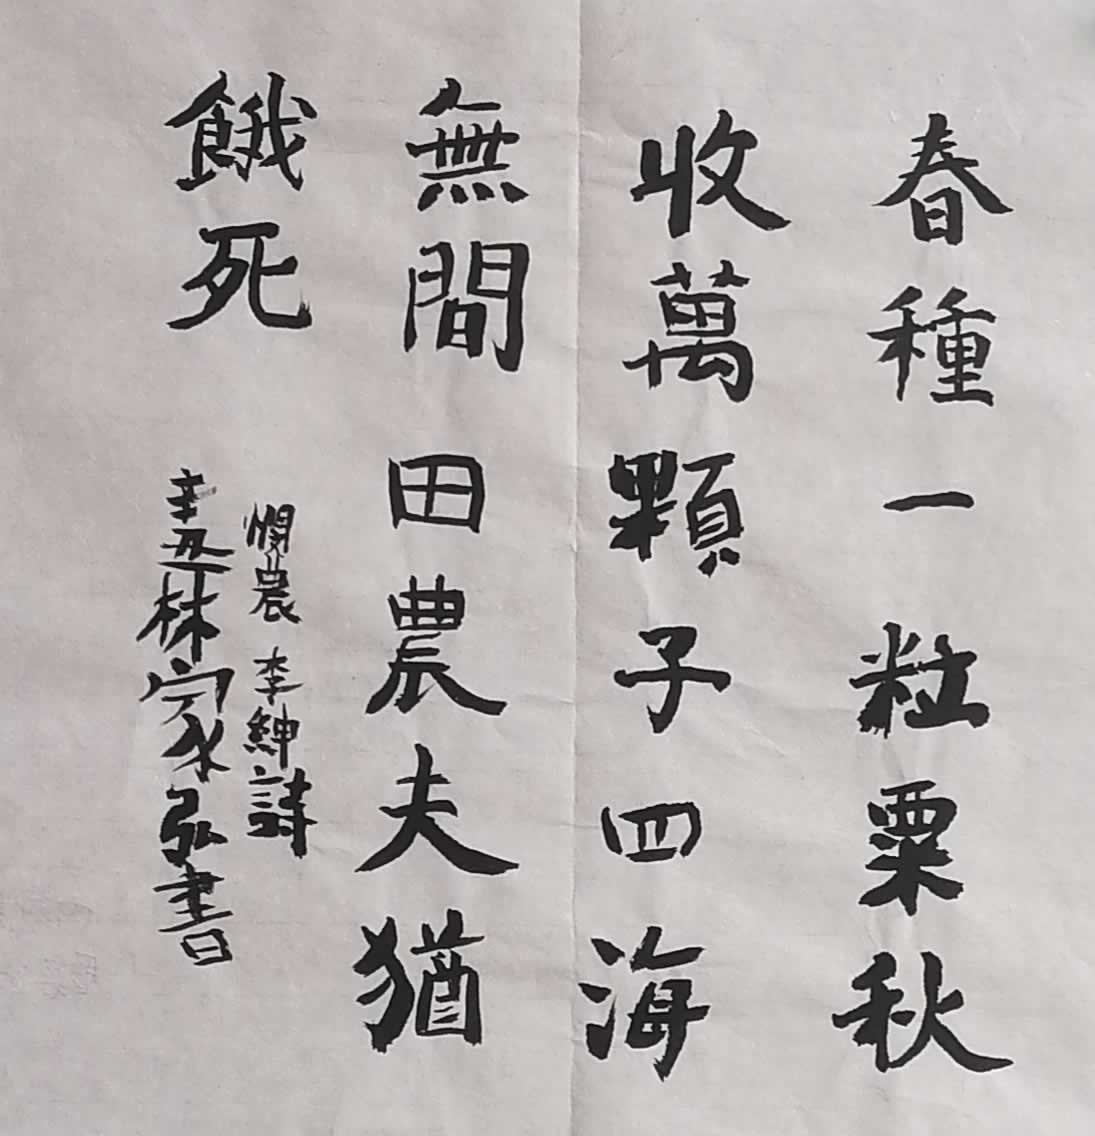 春種一粒粟秋
收萬顆子四海
無間田農夫猶
餓死
憫農 李紳詩
辛丑林家弘書